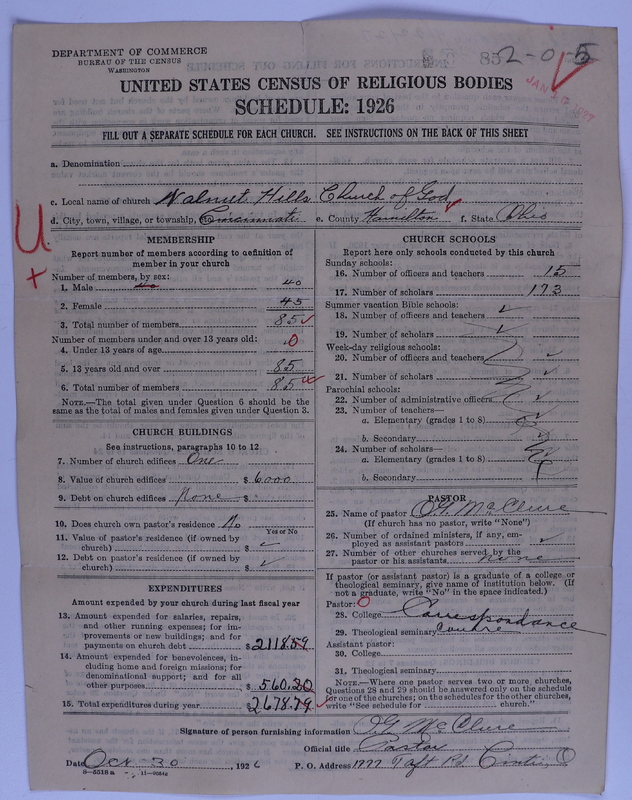 DEPARTMENT OF COMMERCE
BUREAU OF THE CENSUS
WASHINGTON
852-0-5
UNITED STATES CENSUS OF RELIGIOUS BODIES
SCHEDULE: 1926
FILL OUT A SEPARATE SCHEDULE FOR EACH CHURCH. SEE INSTRUCTIONS ON THE BACK OF THIS SHEET
a. Denomination
c. Local name of church Walnut Hills Church of God
d. City, town, village, or township, Cincinnati e. County Hamilton f. State Ohio
U
+
MEMBERSHIP
Report number of members according to definition of
member in your church
Number of members, by sex:
1. Male 40 40
2. Female 45
3. Total number of members 85
Number of members under and over 13 years old:
4. Under 13 years of age 0
5. 13 years old and over 85
6. Total number of members 85
NOTE.—The total given under Question 6 should be
same as the total of males and females given under Question 3.
CHURCH BUILDINGS
See instructions, paragraphs 10 to 12
7. Number of church edifices One
8. Value of church edifices $6000
9. Debt on church edifices None $
10. Does church own pastor's residence No
Yes or No
11. Value of pastor's residence (if owned by
church) $
12. Debt on pastor's residence (if owned by
church) $
EXPENDITURES
Amount expended by your church during last fiscal year
13. Amount expended for salaries, repairs,
and other running expenses; for im-
provements or new buildings; and for
payments on church debt $2118.59
14. Amount expended for benevolences, in-
cluding home and foreign missions; for
denominational support; and for all
other purposes $560.20
15. Total expenditures during year $2678.79
CHURCH SCHOOLS
Report here only schools conducted by this church
Sunday schools:
16. Number of officers and teachers 15
17. Number of scholars 173
Summer vacation Bible schools:
18. Number of officers and teachers
19. Number of scholars
Week-day religious schools:
20. Number of officers and teachers
21. Number of scholars
Parochial schools:
22. Number of administrative officers
23. Number of teachers—
a. Elementary (grades 1 to 8)
b. Secondary
24. Number of scholars—
a. Elementary (grades 1 to 8)
b. Secondary
PASTOR
25. Name of pastor O.G. McClure
(If church has no pastor, write "None")
26. Number of ordained ministers, if any, em-
ployed as assistant pastors
27. Number of other churches served by the
pastor or his assistants none
If pastor (or assistant pastor) is a graduate of a college or
theological seminary, give name of institution below. (If
not a graduate, write "No" in the space indicated.)
Pastor: O
28. College Correspondance
29. Theological seminary Course
Assistant pastor:
30. College
31. Theological seminary
NOTE.—Where one pastor serves two or more churches,
Questions 28 and 29 should be answered only on the schedule
for one of the churches; on the schedules for the other churches,
write "See schedule for church."
Signature of person furnishing information O.G. McClure
Official title Pastor
Date Oct 30, 1926 P. O. Address 1777 Taft Rd. Cintin O
8-5518a 11-9084